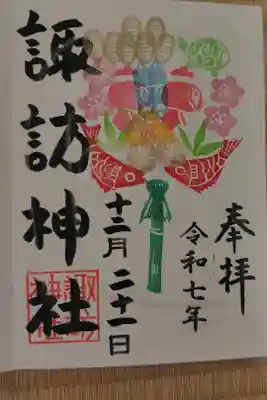 奉拝
令和七年
十二月二十一日
諏訪神社